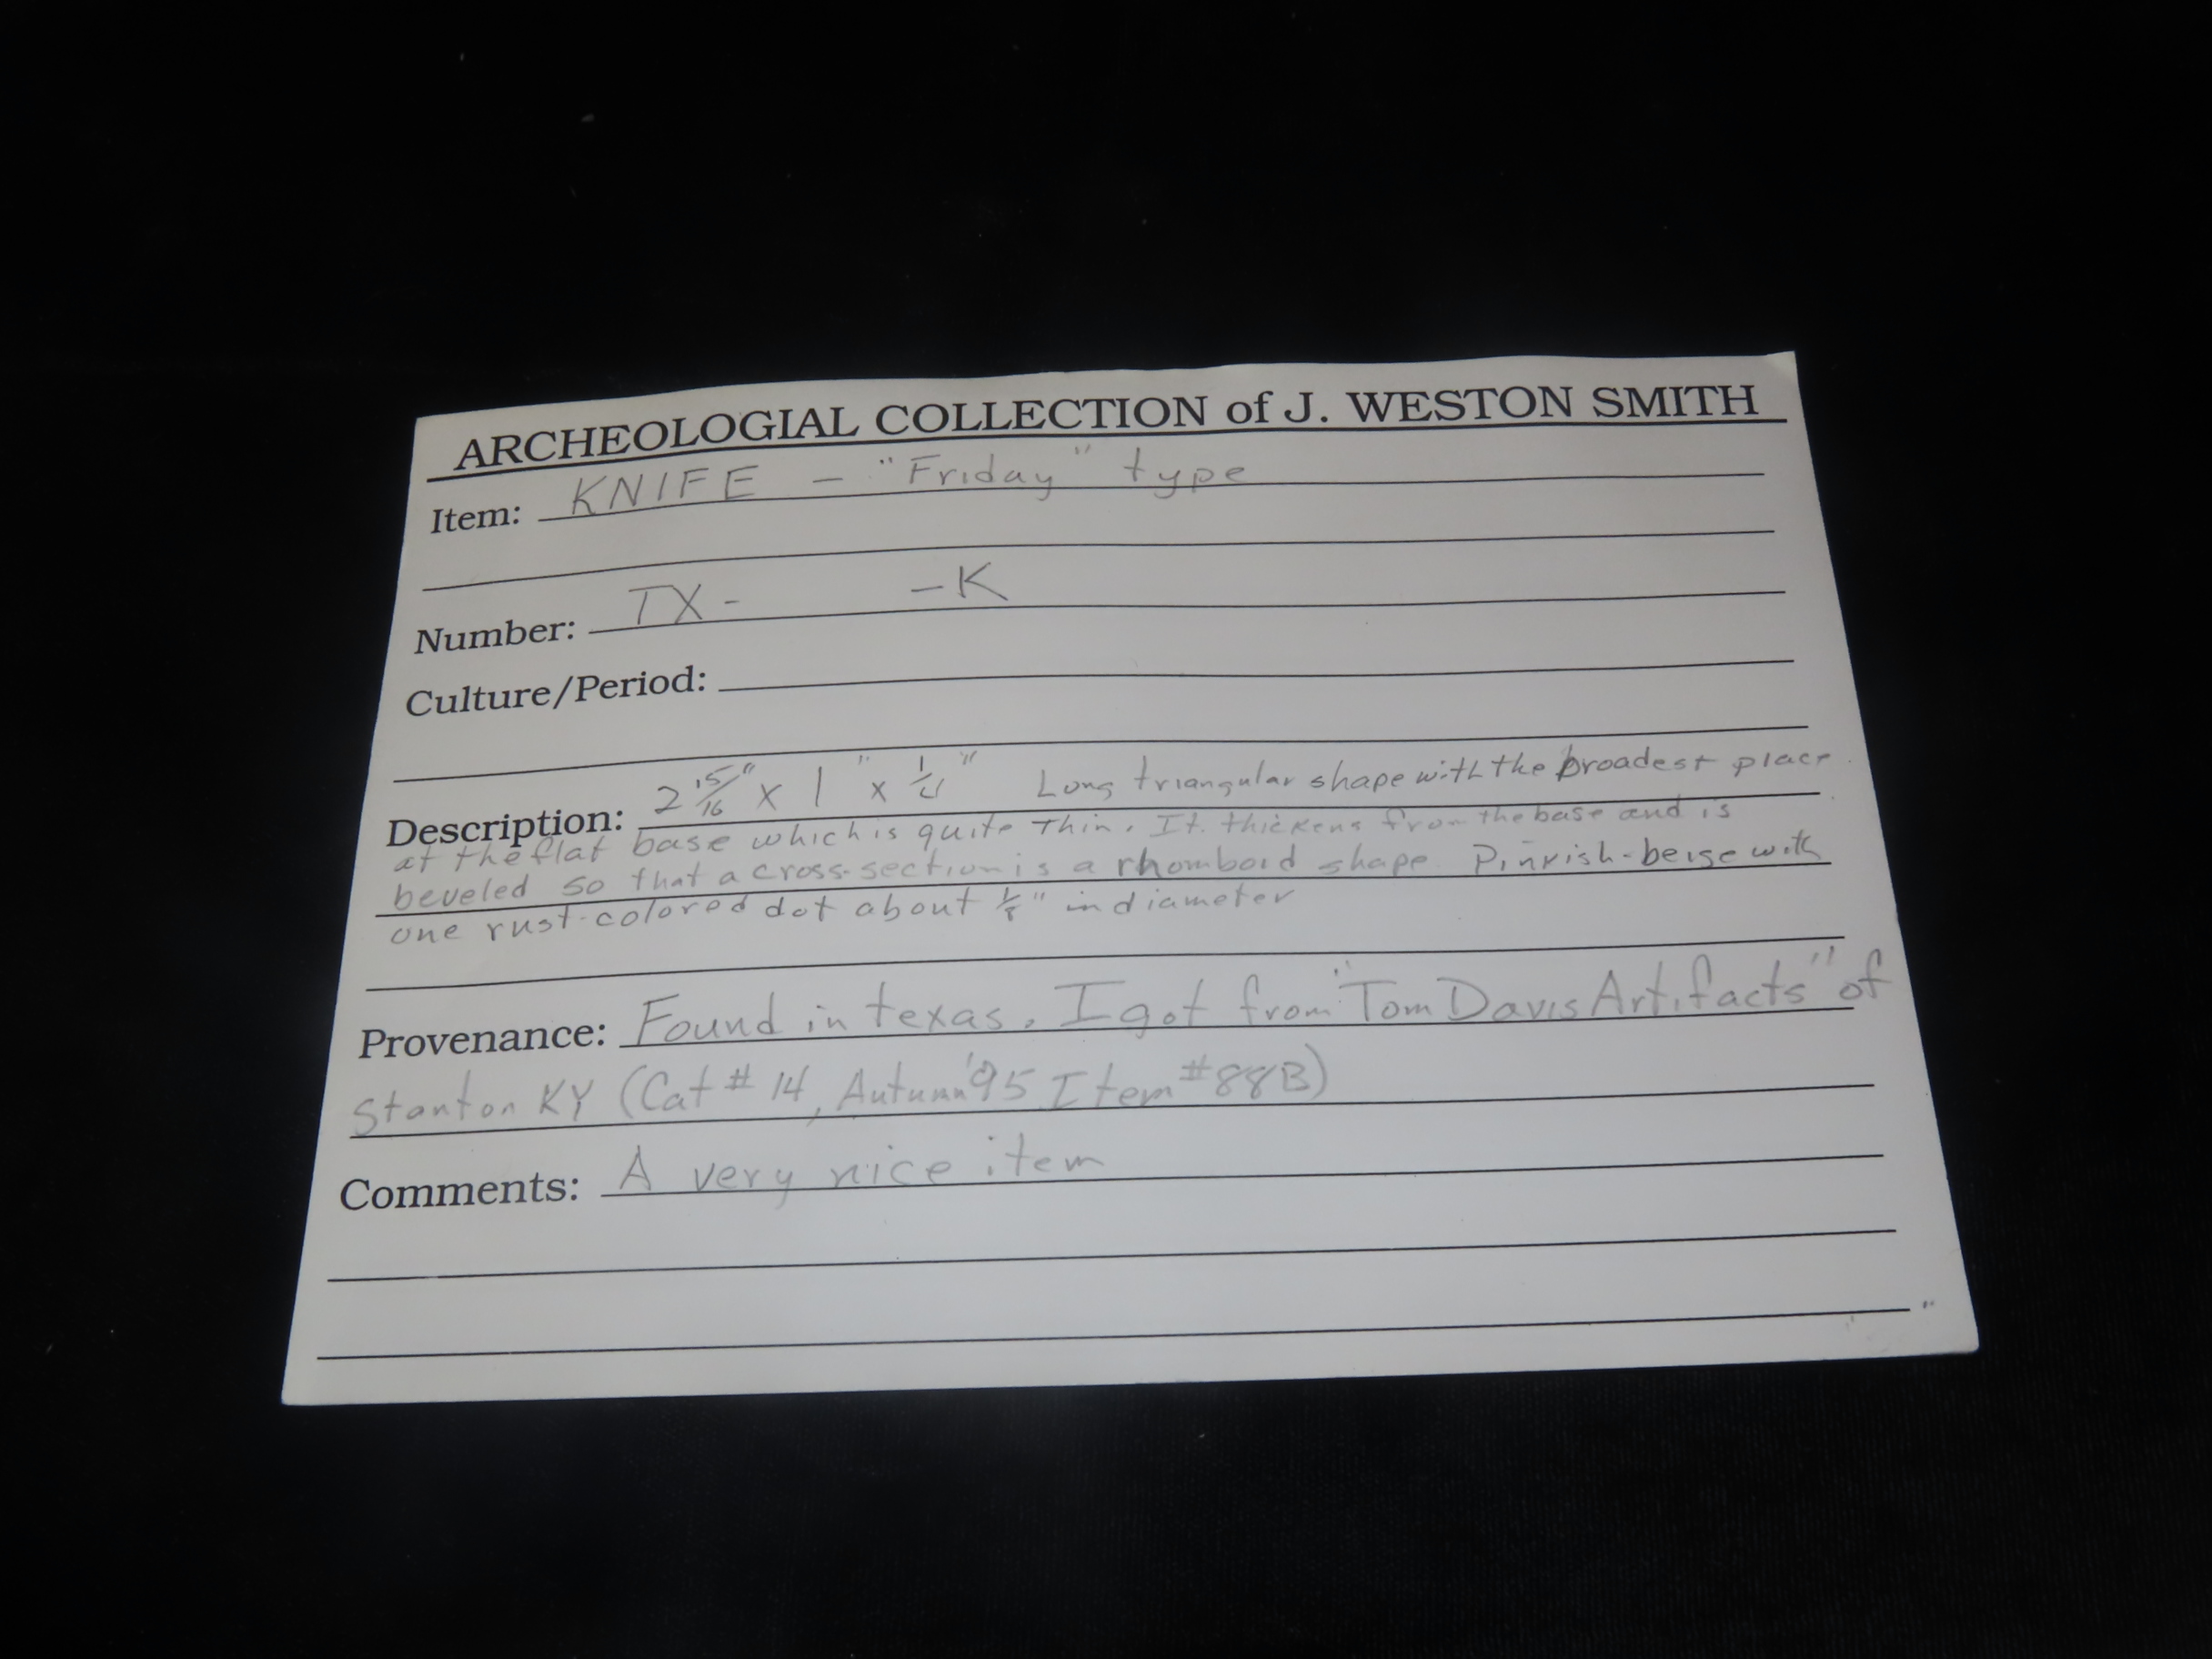 ARCHEOLOGIAL COLLECTION of J. WESTON SMITH
Item: KNIFE - "Friday" type
Number: TX- -K
Culture/Period:
Description: 2 15/16" x 1" x 1/4" Long triangular shape with the broadest place
at the flat base which is quite thin. It thickens from the base and is
beveled so that a cross-section is a rhomboid shape. Pinkish-beige with
one rust-colored dot about 1/8" in diameter
Provenance: Found in texas. I got from "Tom Davis Artifacts" of
Stanton KY (Cat # 14, Autumn '95 Item #88B)
Comments: A very nice item